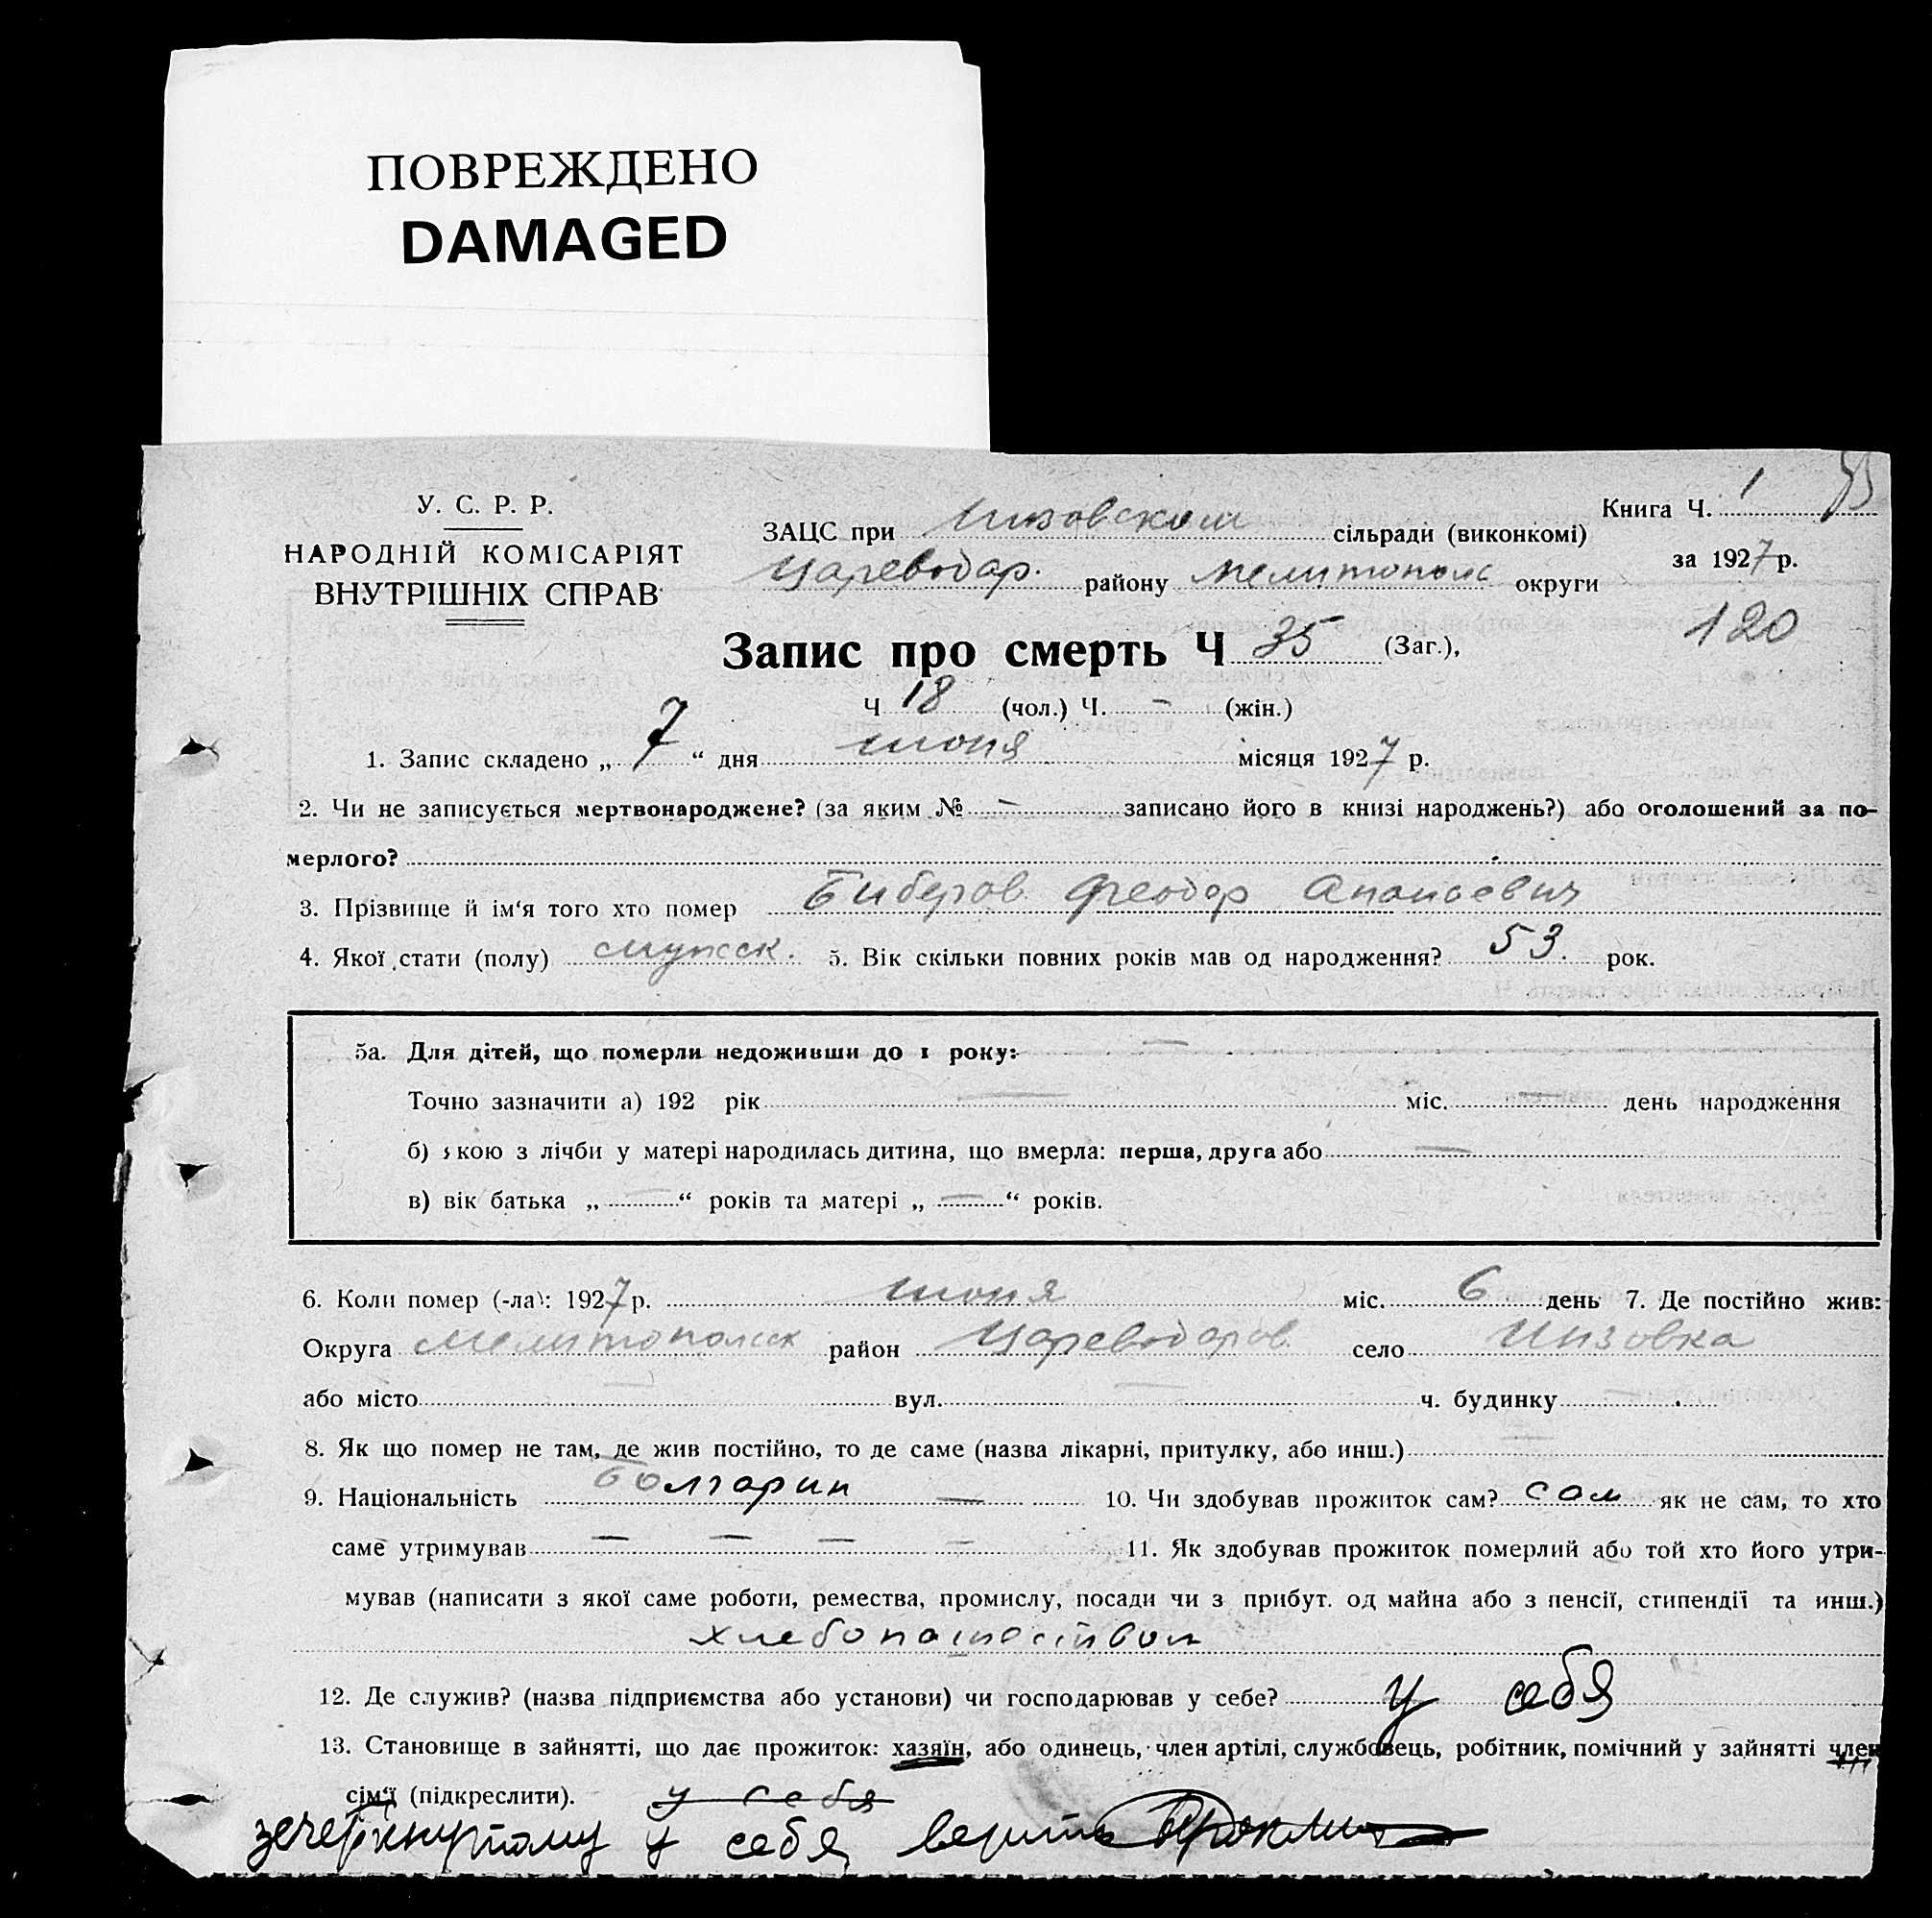 ПОВРЕЖДЕНО
DAMAGED
У. С. Р. Р.
НАРОДНІЙ КОМІСАРІЯТ
ВНУТРІШНІХ СПРАВ
ЗАЦС при Инзовском сільради (виконкомі)
Цареводар. району Мелитополс округи
Книга Ч. 1
за 1927 р.
120
Запис про смерть Ч 35 (Заг.),
Ч 18 (чол.) Ч. - (жін.)
1. Запис складено „ 7 “ дня июня місяця 1927 р.
2. Чи не записується мертвонароджене? (за яким № - записано його в книзі народжень?) або оголошений за по-
мерлого?
3. Прізвище й ім‘я того хто помер Биберов Феодор
4. Якої стати (полу) мужск. 5. Вік скільки повних років мав од народження? 53. рок.
5а. Для дітей, що померли недоживши до 1 року: —
Точно зазначити а) 192 рік — міс. — день народження
б) якою з лічби у матері народилась дитина, що вмерла: перша, друга або —
в) вік батька „ — “ років та матері „ — “ років.
6. Коли помер (-ла): 1927 р. июня міс. 6 день 7. Де постійно жив:
Округа Мелитопольск район Цареводаров. село Инзовка
або місто — вул. — ч. будинку
8. Як що помер не там, де жив постійно, то де саме (назва лікарні, притулку, або инш.) —
9. Національність болгарин — 10. Чи здобував прожиток сам? сам як не сам, то хто
саме утримував — — — — 11. Як здобував прожиток померлий або той хто його утри-
мував (написати з якої саме роботи, ремества, промислу, посади чи з прибут. од майна або з пенсії, стипендії та инш.)
хлебопашеством
12. Де служив? (назва підприємства або установи) чи господарював у себе? у себя
13. Становище в зайнятті, що дає прожиток: хазяїн, або одинець, член артілі, службовець, робітник, помічний у зайнятті член
сім‘ї (підкреслити). у себя
зечеркнутому у себя верить